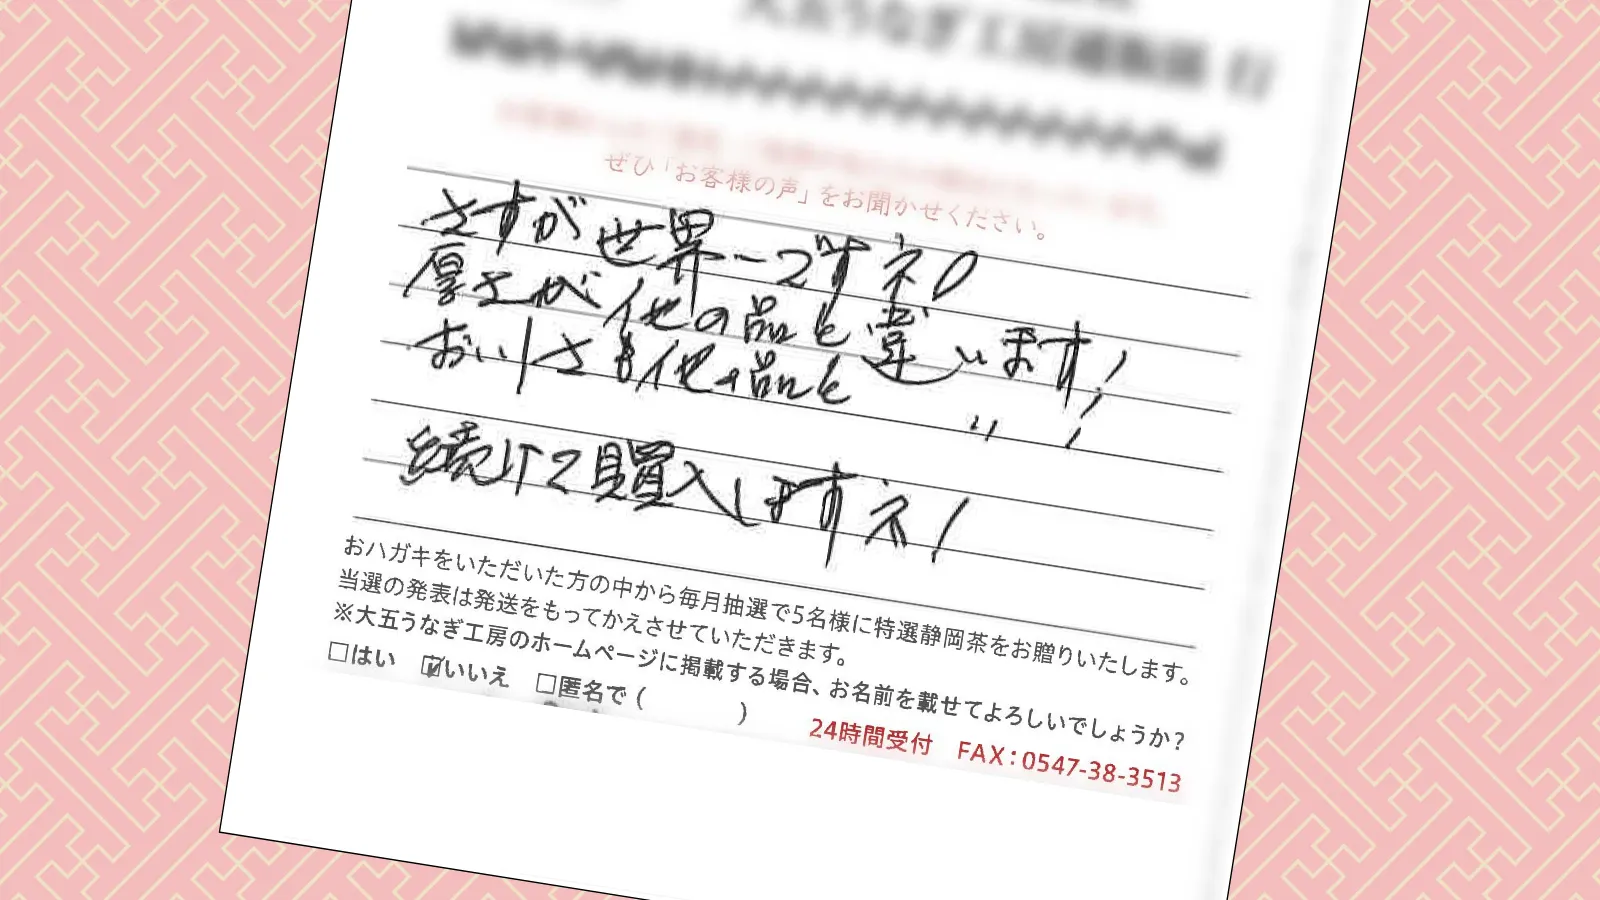 大五うなぎ工房通販係 行
ぜひ「お客様の声」をお聞かせください。
さすが世界一ですネ()
厚さが他の品と違います!
おいしさも他の品と 〃 !
続けて購入しますネ!
おハガキをいただいた方の中から毎月抽選で5名様に特選静岡茶をお贈りいたします。
当選の発表は発送をもってかえさせていただきます。
※大五うなぎ工房のホームページに掲載する場合、お名前を載せてよろしいでしょうか?
□はい ☑いいえ □匿名で( )
24時間受付 FAX:0547-38-3513